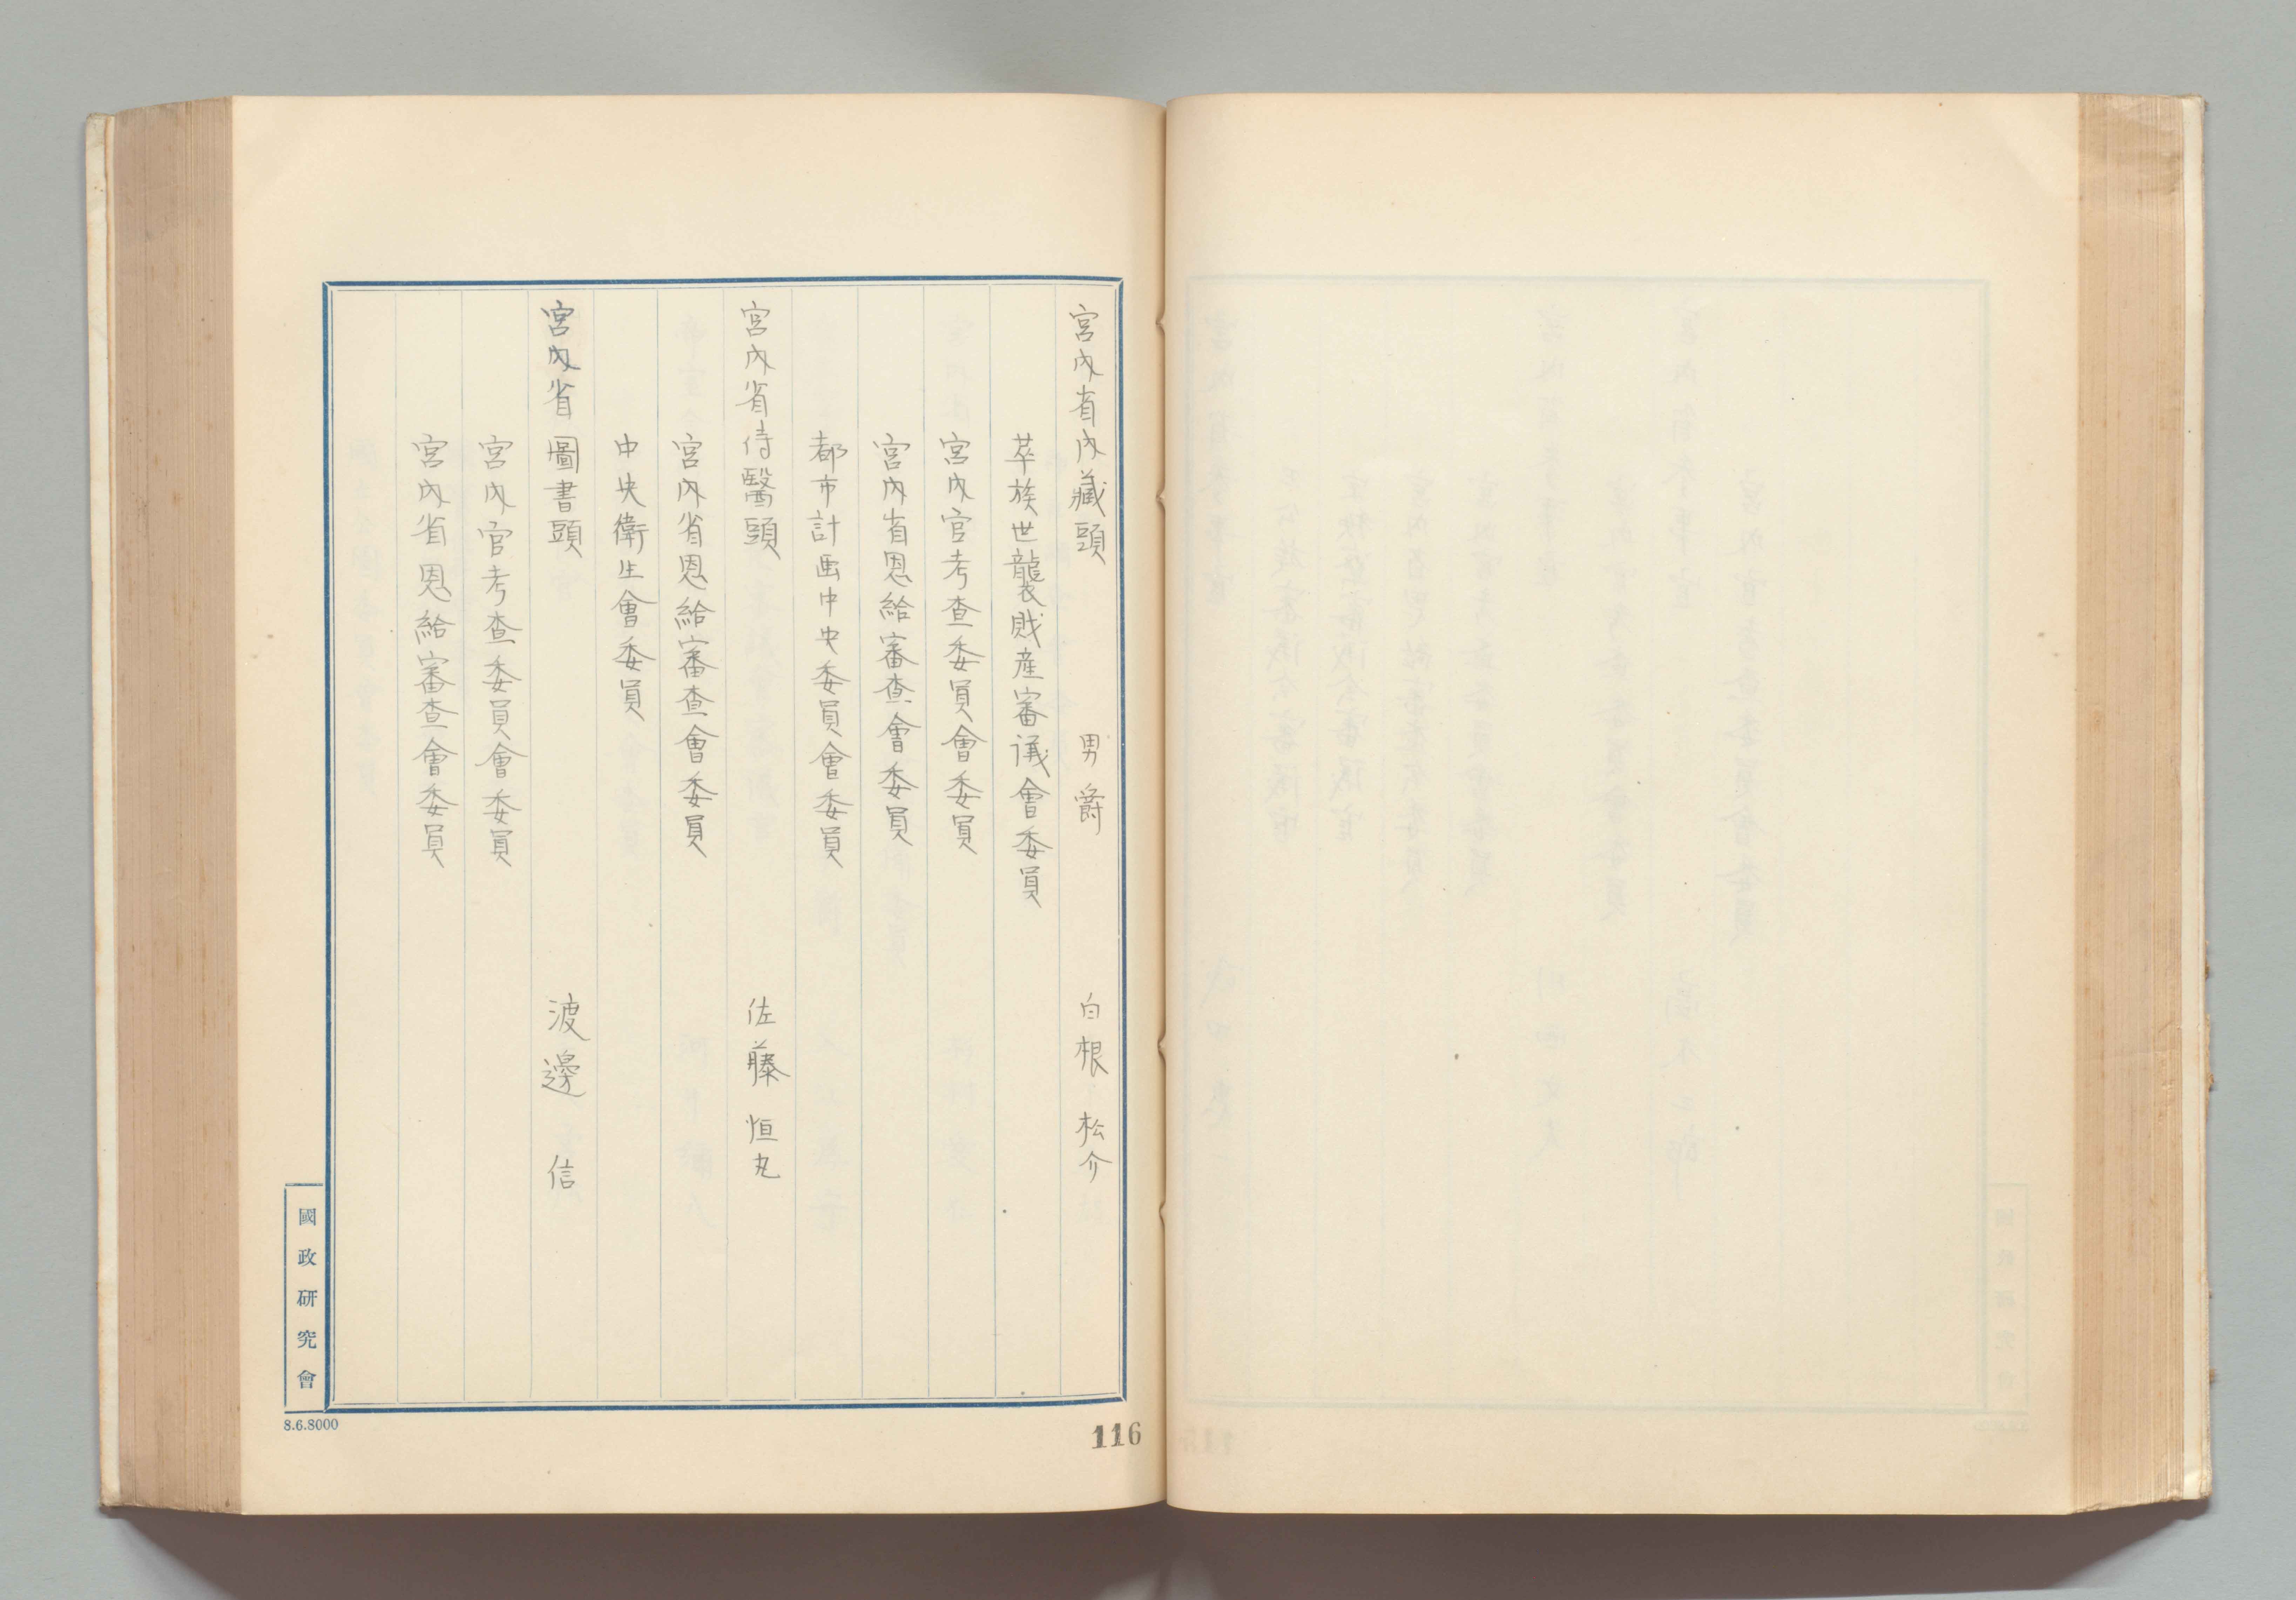 宮內省內藏頭 男爵 白根松介
華族世襲財産審議會委員
宮內官考査委員會委員
宮內省恩給審査會委員
都市計画中央委員會委員
宮內省侍醫頭 佐藤恒丸
宮內省恩給審査會委員
中央衛生會委員
宮內省圖書頭 渡邊信
宮內官考査委員會委員
宮內省恩給審査會委員
國政研究會
8.6.8000
116